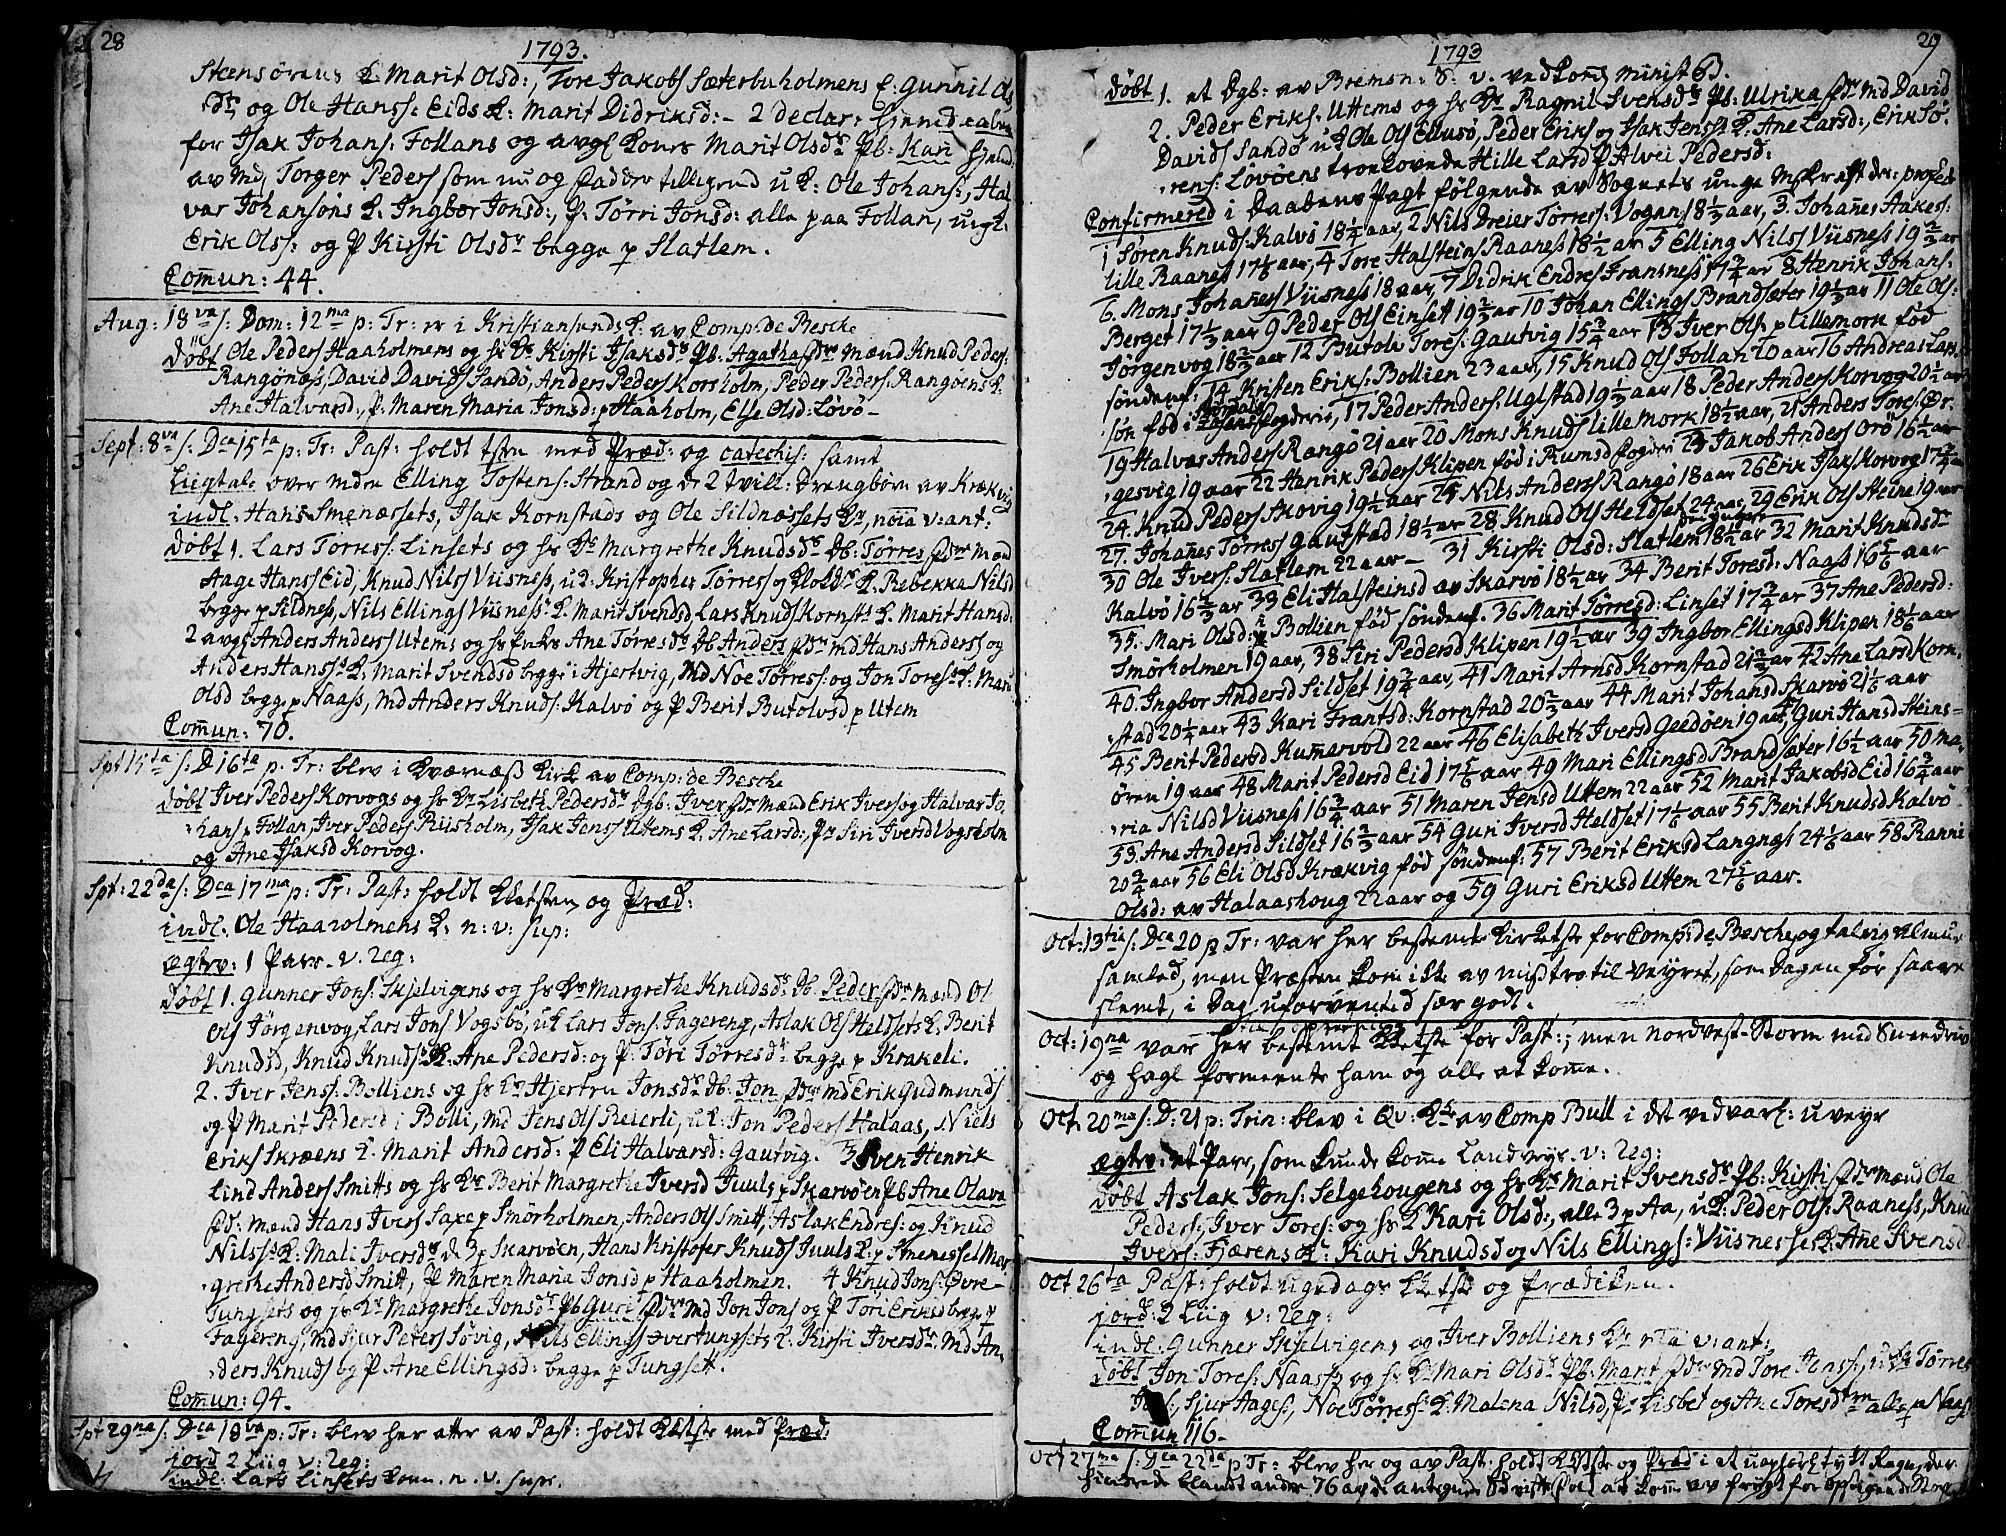 28
1793.
Steensørens K: Marit Olsd:, Tore Jakobs Sæterbuholmens K: Gunnil Ols
dr, og Ole Hanss: Eids K: Marit Didriksd: - 2 declar:
for Isak Johans: Follans og Kones Marit Olsdr Pb: Kari
av Md Torger Peders som nu og Fadder tilligemed uK: Ole Johans:, Hal
var Johansøns K: Ingbor Jonsd:, P: Tørri Jonsd: alle paa Follan, ungk:
Erik Ols: og P Kirsti Olsdr begge p Slatlem.
Comun: 44.
Aug: 18va s: Dom: 12ma p: Tr: er i Kristiansunds K: av Comp: de Besche
døbt Ole Peders Haaholmens og hs Ks Kirsti Isaksdr Pb: Agatha Fdre Mænd Knud Peders:
Rangønæss, David Davids Sandø, Anders Peders Korsholm, Peder Peders: Rangøens K:
Ane Halvarsd:, P: Maren Maria Jonsd: p Haaholm, Else Olsd: Løvø -
Sept: 8va s: Dca 15ta p: Tr: Past: holdt tsten med Præd: og catechis: samt
Liigtale over mdn Elling Tostens: Strand og de 2 tvill: Drengbørn av Krækvig
indl: Hans Smenæssets, Isak Kornstads og Ole Sildnæssets Kr, nöia v: ant:
døbt 1. Lars Tørres: Linsets og hs Ks Margrethe Knudsdr Db: Tørres Fdre Mænd
Aage Hanss Eid, Knud Nilss Viisness, uK: Kristopher Tørress og K: Rebekka Nilsd
begge p Sildness, Nils Ellings Viisness: K: Marit Svendsd, Lars Knuds Kornsts K: Marit Hansd:
2 avgs Anders Anders Utems og hs Enke Ane Tørresdr Db Anders Fdre md Hans Anderss og
Anders Hanss: K: Marit Svendsd begge i Hjertvig, Md Noe Tørres: og Jon Tores: K: Mari
Olsd begge p Naass, Md Anders Knuds: Kalvø og P Berit Butolvsd p Utem
Comun: 70.
Spt 15ta s: D 16ta p: Tr: blev i Kværnæss Kirke av Comp: de Besche
døbt Iver Peders Korvogs og hs Ks Lisbeth Pedersdr Dgb: Iver Fdre Mænd Erik Ivers og Halvar Jo,
hans p Follan, Iver Peders Riisholm, Isak Jenss Uttems K: Ane Larsd:, Pr Siri Iversd Vogsholm
og Ane Isaksd Korvog.
Spt: 22da s: Dca 17ma p: Tr: Past: holdt Ktsten og Præd:
indl: Ole Haaholmens K: n: v: sup:
ægtev: 1 Parr. v: reg:
døbt 1. Gunner Jons: Skjelvigens og hs Ks Margrethe Knudsdr Db: Peder Fdre Mænd Ol
Ols Jørgenvog, Lars Jons Vogsbø, uK Lars Jons: Fagereng, Aslak Ols Heldsets K: Berit
Knudsd, Knud Knuds: K: Ane Pedersd: og P: Tøri Tørresdr begge p Krakeli.
2. Iver Jens: Bolliens og hs Ks Hjertru Jonsdr Db: Jon Fdre md Erik Gudmunds
og P Marit Pedersd i Bolli, Md Jens Ols Reierli, uK: Jon Peders Halaas, Niels
Eriks Skræens K: Marit Andersd: P Eli Halvarsd: Gautvig. 3 Sven Henrik
Lind Anders Smitts og hs Ks Berit Margrethe Iversd Juuls p Skarvøen Pb Ane Olava
Fdr: Mænd Hans Ivers Saxe p Smörholmen, Anders Ols Smitt, Aslak Endres: og Knud
Nilss: K: Mali Iversdr de 3 p Skarvøen, Hans Kristofer Knuds Juuls K: p Smenesset Mar
grethe Andersd Smitt, P Maren Maria Jonsd p Haaholmen. 4 Knud Jons: Øvre
Tungsets og hs Ks Margrethe Jonsdr Pb Guri Fdre Md Jon Jons og P Töri Eriksd begge p
Fagereng, Md Sjur Peters Søvig, Nils Ellings øvertungsets K. Kirsti Iversdr. Md An
ders Knuds og P Ane Ellingsd: begge p Tungset.
Comun: 94.
Spt 29na s: Dca 18va p: Tr: blev her atter av Past: holdt Ktste med Præd:
jord 2 Liig v: reg:
indl: Lars Linsets Kone. n. v. supr.
29
1793
Döbt 1. et Dgb: av Bremsn: S: v. ved
2. Peder Eriks: Uttems og hs Ks Ragnil Svensdr Pb: Ulrika Fdre Md David
Davids Sandö uK Ole Ols Ellusö, Peder Eriks og Isak Jens: K. Ane Larsd:, Erik Sö
rens: Lövöens troelovede Hille Larsd P Alvei Pedersd:
Confirmered i Daabens Pagt følgende av Sognets unge
1 Søren Knuds: Kalvö 18 1/4 aar, 2 Nils Dreier Törres: Vogan 18 1/3 aar, 3. Johanes Aakes:
lille Raaness 17 1/8 aar, 4 Tore Halsteins Raaness 18 1/2 ar 5 Elling Nilss Viisness 19 2/3 ar
6. Mons Johaness Viisness 18 aar, 7 Didrik Endres Fransness 17 3/4 ar 8 Henrik Johans:
Berget 17 1/3 aar 9 Peder Ols Einset 19 2/3 ar 10 Johan Ellings Brandsæter 19 1/3 ar 11 Ole Ols:
Jørgenvog 18 2/3 aar 12 Butolv Tores: Gautvig 15 3/4 aar 13 Iver Ols: p Lillemork fød
søndenf: 14 Kristen Eriks: Bollien 23 aar, 15 Knud Ols Follan 20 aar 16 Andreas Lars
søn fød i Fogderie, 17 Peder Anders: Uglstad 19 1/3 aar 18 Peder Anders Korvog 20 1/2 aar
19 Halvar Anders Rangö 21 aar 20 Mons Knuds lille Mork 18 1/2 aar, 21 Anders Tores Ør
gesvig 19 aar 22 Henrik Peders Klipen fød i Rumsd Fogderi 23 Jakob Anders Orö 16 1/2 ar
24. Knud Peders Skovig 19 1/2 aar 25 Nils Anders Rangö 18 aar 26 Erik Isaks Korvog 17 3/4
27. Johanes Tørres Gautstad 18 1/2 ar 28 Knud Ols Heldset 24 aar, 29 Erik Ols Steine 19 aar
30 Ole Ivers: Slatlem 22 aar - 31 Kirsti Olsd: Slatlem 18 2/4 ar 32 Marit Knudsdr
Kalvö 16 2/3 ar 33 Eli Halsteinsd av Skarvö 18 1/2 ar 34 Berit Toresd: Naass 16 5/6 aar
35. Mari Olsd: i Bollien fød søndenf. 36 Marit Tørresd: Linset 17 3/4 ar 37 Ane Pedersd:
Smörholmen 19 aar, 38 Siri Pedersd Klipen 19 1/2 ar 39 Ingbor Ellingsd Klipen 18 1/6 aar
40. Ingbor Andersd Sildset 19 3/4 aar, 41 Marit Arnsd Kornstad 21 2/3 ar 42 Ane Larsd Korn,
stad 20 1/4 aar 43 Kari Frantsd: Kornstad 20 2/3 aar 44 Marit Johansd Skarvö 21 1/6 aar
45 Berit Pedersd Kumervold 22 aar 46 Elisabeth Iversd Geedöen 19 aar, 47 Guri Hansd Steins=
ören 19 aar 48 Marit Pedersd Eid 17 5/6 aar 49 Mari Ellingsd Brandsæter 16 1/2 aar 50 Ma,
ria Nilsd Viisness 16 3/4 aar 51 Maren Jensd Uttem 22 aar 52 Marit Jakobsd Eid 16 3/4 aar
53. Ane Andersd Sildset 16 2/3 aar 54 Guri Iversd Heldset 17 1/6 aar 55 Berit Knudsd Kalvö
20 3/4 aar 56 Eli Olsd Krækvig fød søndenf: 57 Berit Eriksd Langnæs 24 1/6 aar 58 Ranni
Olsd: av Halaashoug 22 aar og 59 Guri Eriksd Uttem 27 1/6 aar.
Oct: 13tia s: Dca 20 p Tr: var her bestemt Kirketste for Comp: de Besche, og talrig Almue
samled, men Præsten kom ikke av mistro til Veyret, som Dagen før saare
slemt, i Dag uforvented sær godt.
Oct: 19na var her bestemt Ktste for Past:; men Nordvest-Storm med Sneedriv
og hagl formeente ham og alle at kome.
Oct: 20ma s: D: 21 p: Trin: blev i Qv: Kke av Comp Bull i det vedvar: uveyr
ægtev: et Parr, som kunde kome Landveys. v: reg:
døbt Aslak Jons: Selgehougens og hs Ks Marit Svensdr Pb: Kirsti Fdre Mænd Ole
Peders, Iver Tores: og hs K Kari Olsd:, alle 3 p Aa, uK: Peder Ols: Raaness, Knud
Ivers: Fjærens K: Kari Knudsd og Nils Ellings: Viisnesses K: Ane Svensd
Oct 26ta Past: holdt ugedags Ktste og Prædiken.
jord: 2 Liig v: reg:
indl: Gunner Skjelvigens og Iver Bolliens Kr v: ant:
døbt Jon Tores: Naass og hs Ks Mari Olsdr Pb: Marit Fdre Md Tore Jenss:, uK Tørres
Sjur Aages, Noe Tørres: K: Malena Nilsd, P: Lisbet og Ane Toresd alle p Naass
Comun 116 -
Oct 27ma s: Dca 22da p Tr: blev her og av Past: holdt Ktste og Præd i et uophørl: tykt Regn, der
hindrede blandt andre 76 av de antegnede Skriftefolk at kome av frygt for opstigende Storm